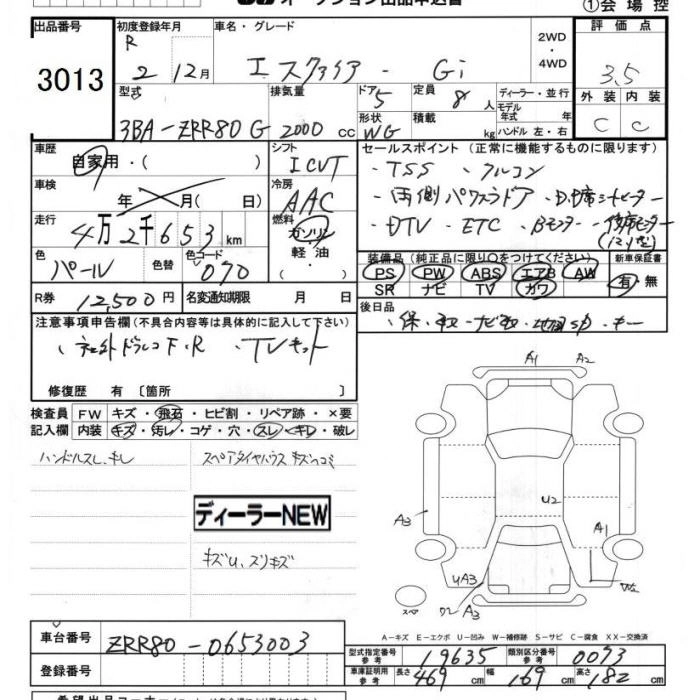 オークション出品申込書
①会場控
出品番号 3013
初度登録年月 R 2 12月
車名・グレード エスクァイア - Gi
2WD・4WD
評価点 3.5
型式 3BA-ZRR80G
排気量 2000cc
ドア 5
形状 WG
定員 8人
積載 kg
ディーラー・並行
モデル年式 年式
ハンドル 左・右
外装 C 内装 C
車歴 自家用・( )
シフト ICVT
セールスポイント (正常に機能するものに限ります)
・TSS ・クルコン
・両側パワスラドア
・DTV ・ETC ・Bモニター
車検 年 月( 日)
冷房 AAC
走行 4万2千653km
燃料 ガソリン・軽油・
色 パール 色替 色コード 070
装備品(純正品に限り〇をつけてください) 新車保証書
PS PW ABS エアB AW 有・無
SR ナビ TV カワ
R券 12,500円 名変通知期限 月 日
後日品 ・保・取・ナビ取
注意事項申告欄(不具合内容等は具体的に記入して下さい)
・社外ドラレコF・R ・TVキット
修復歴 有 〔箇所 〕
検査員記入欄 FW キズ・飛石・ヒビ割・リペア跡・×要
内装 キズ・汚レ・コゲ・穴・スレ・キレ・破レ
ハンドルスレ、キレ スペアタイヤハウスキズヘコミ
ディーラーNEW
キズu、スリキズ
A1 A2
U2
A3 A1
UA3
A3
スペ
A-キズ E-エクボ U-凹み W-補修跡 S-サビ C-腐食 XX-交換済
車台番号 ZRR80-0653003
登録番号
型式指定番号 参考 19635 類別区分番号 参考 0073
車庫証明用 参考 長さ 469cm 幅 169cm 高さ 182cm